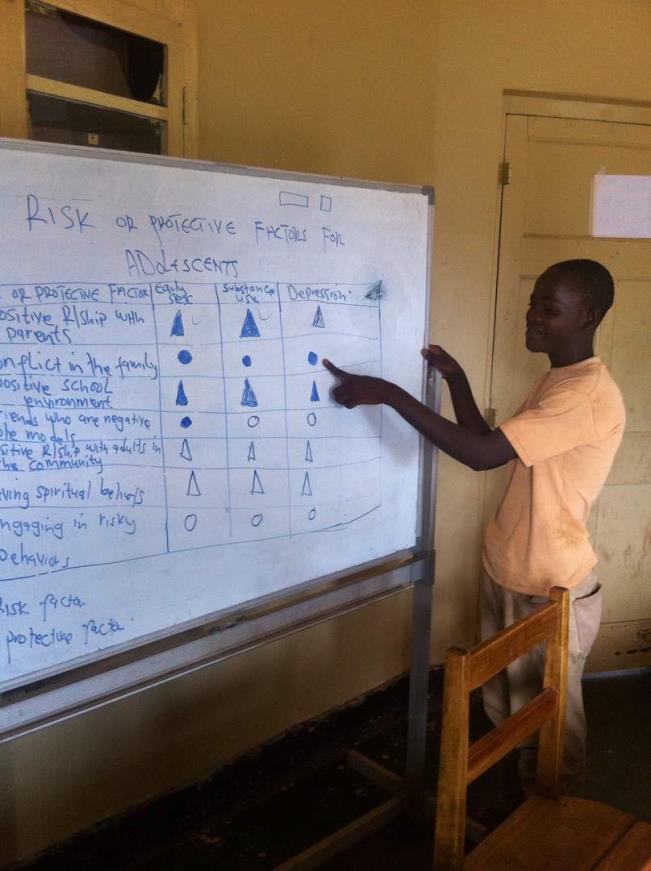 RISK OR PROTECTIVE FACTORS FOR
ADOLESCENTS
OR PROTECTIVE FACTOR Early sex Substance use Depression
ositive R/ship with
parents
onflict in the family
positive school
environment
riends who are negative
ole models
sitive R/ship with adults in
the community
ving spiritual beliefs
ngaging in risky
behaviors
Risk factor
protective factor